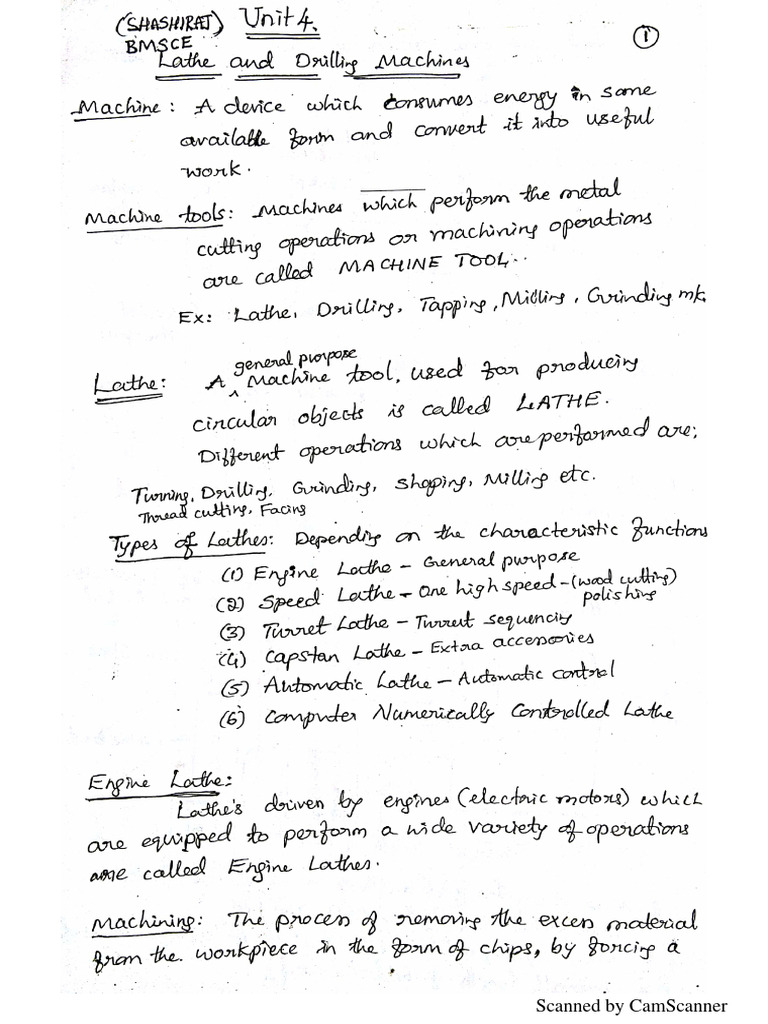 (SHASHIRAJ) Unit 4.
BMSCE
①
Lathe and Drilling Machines
Machine: A device which consumes energy in some
available form and convert it into useful
work.
Machine tools: Machines which perform the metal
cutting operations or machining operations
are called MACHINE TOOL.
Ex: Lathe, Drilling, Tapping, Milling, Grinding m/c.
general purpose
Lathe: A ^ Machine tool, used for producing
circular objects is called LATHE.
Different operations which are performed are;
Turning, Drilling, Grinding, Shaping, Milling etc.
Thread cutting, Facing
Types of Lathes: Depending on the characteristic functions
(1) Engine Lathe – General purpose
(2) Speed Lathe – One high speed – (wood cutting)
polishing
(3) Turret Lathe – Turret sequencing
(4) Capstan Lathe – Extra accessories
(5) Automatic Lathe – Automatic control
(6) Computer Numerically Controlled Lathe
Engine Lathe:
Lathe's driven by engines (electric motors) which
are equipped to perform a wide variety of operations
are called Engine Lathes.
Machining: The process of removing the excess material
from the workpiece in the form of chips, by forcing a
Scanned by CamScanner